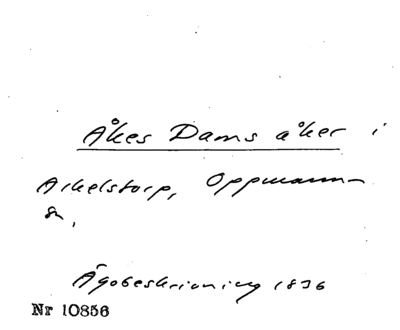 Åkes Dams åker i
Arkelstorp, Oppmanna
sn.
Ägobeskrivning 1836
Nr 10856